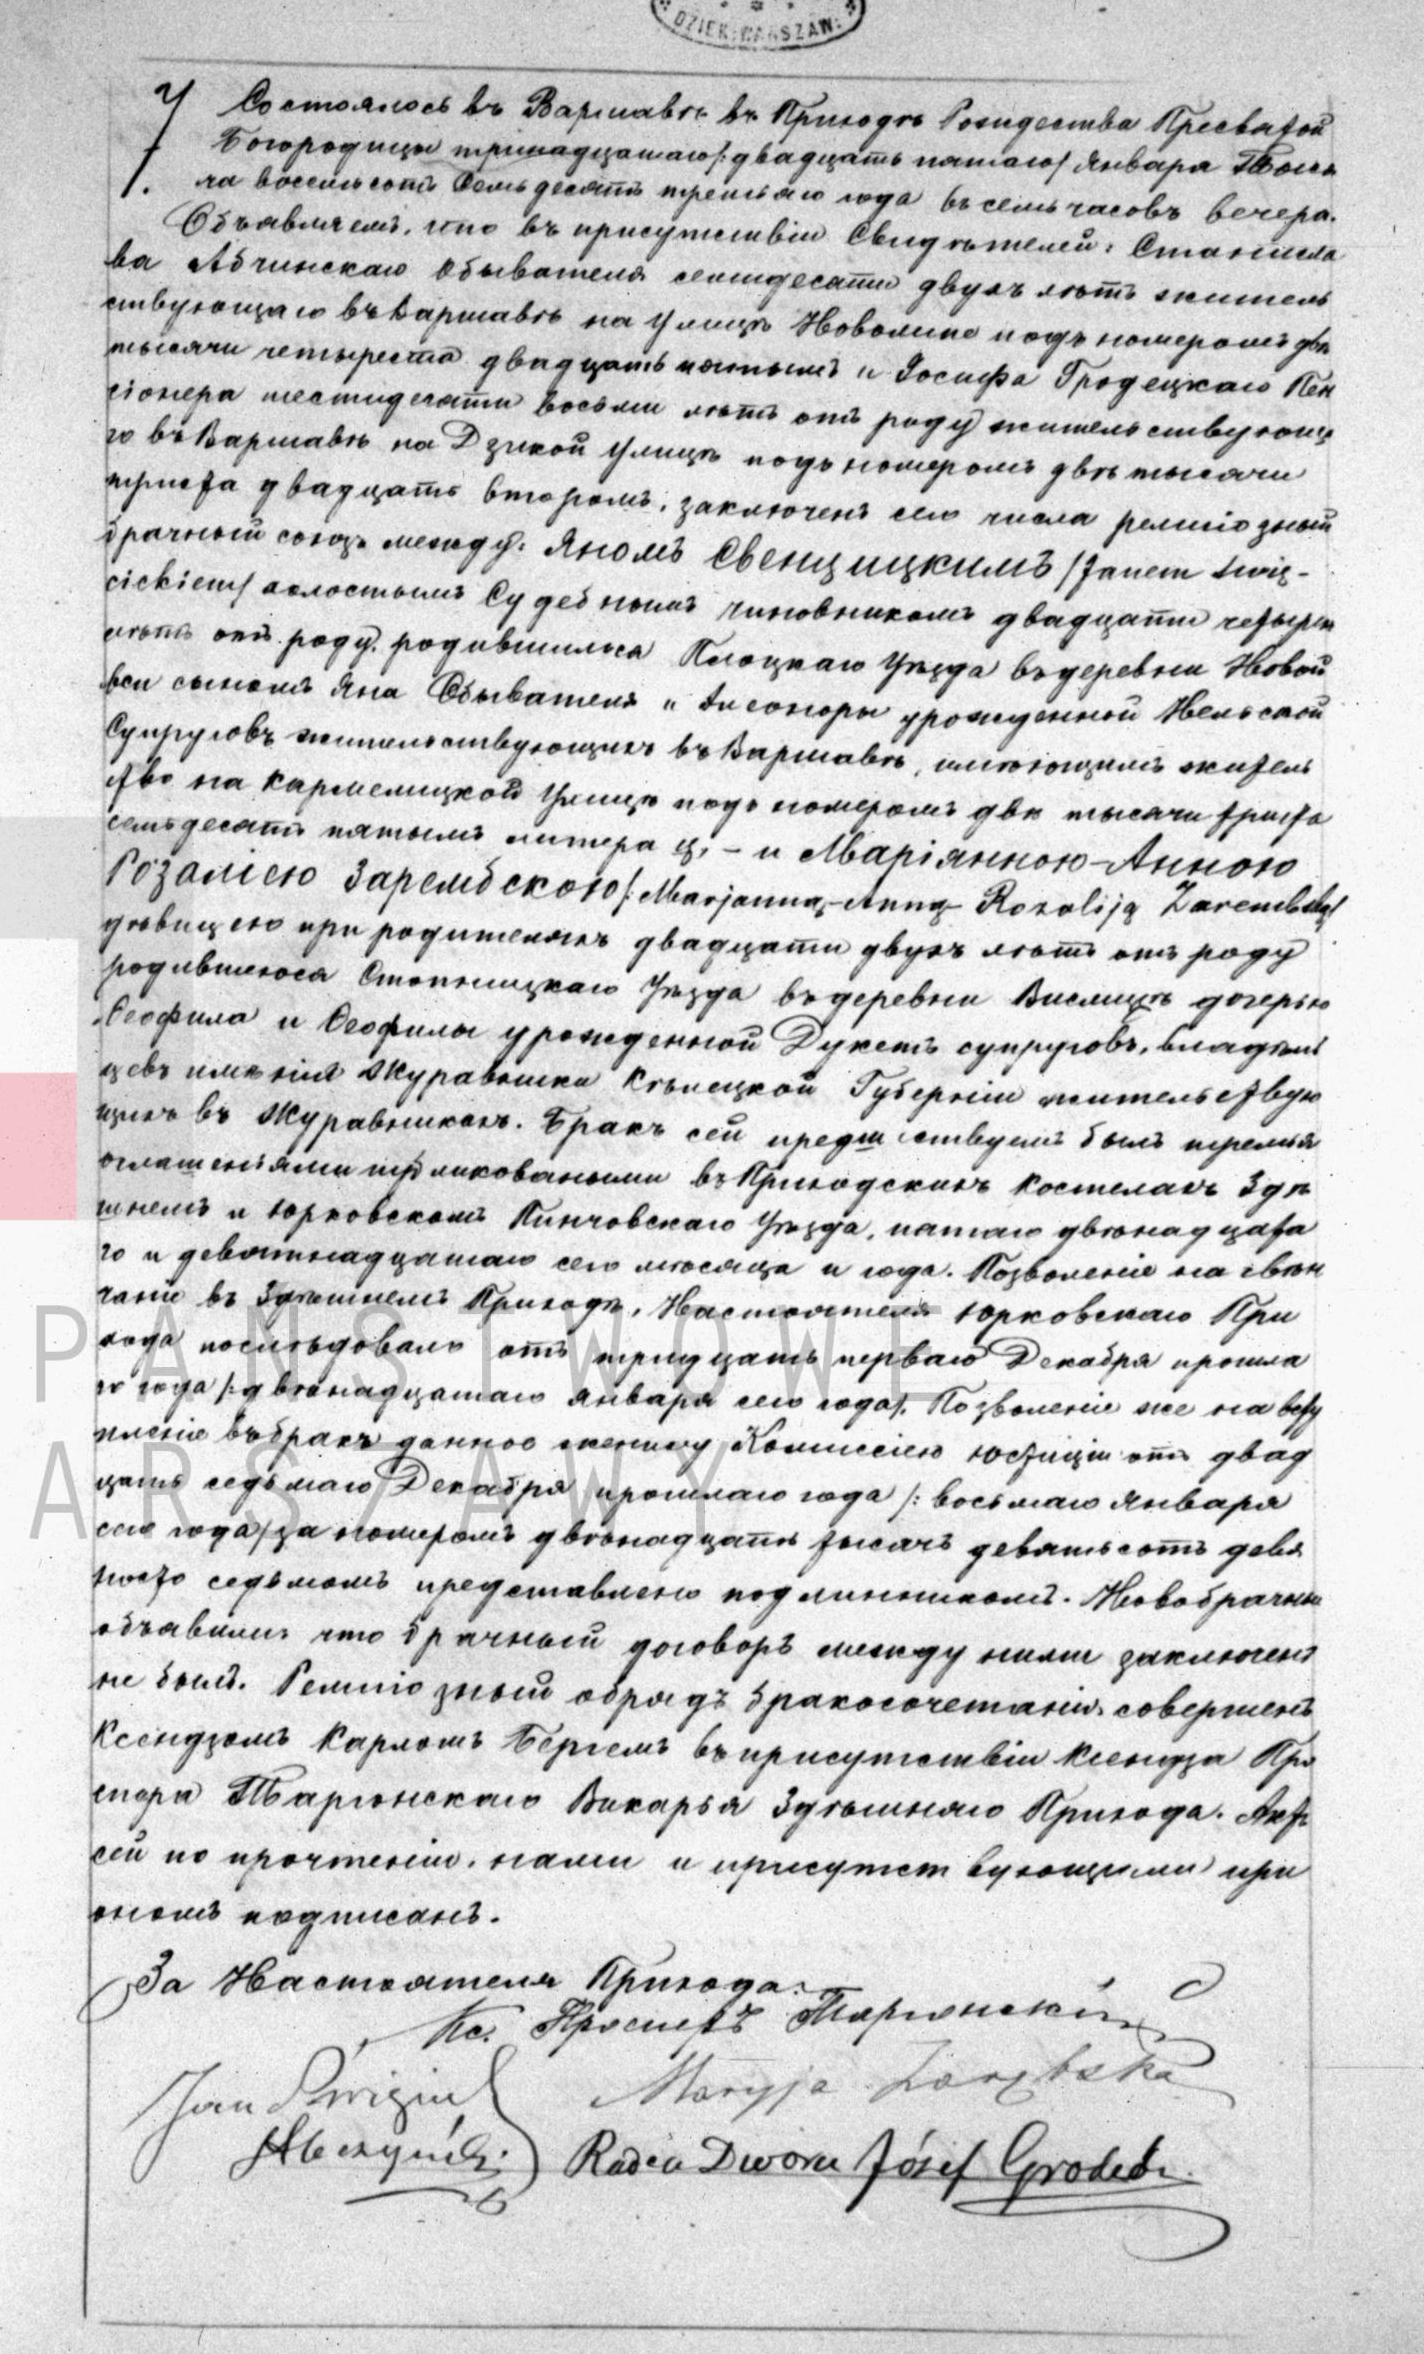 DZIEK. WARSZAW.
7. Состоялось въ Варшавѣ въ Приходѣ Рождества Пресвятой
Богородицы тринадцатаго /: двадцать пятаго / Января Тыся
ча восемьсотъ семьдесятъ третьяго года въ семь часовъ вечера.
Объявляемъ, что въ присутствіи Свидѣтелей: Станисла
ва Абчинскаго Обывателя семидесяти двухъ лѣтъ житель
ствующаго въ Варшавѣ на Улицѣ Новолипе подъ номеромъ двѣ
тысячи четыреста двадцать пятымъ и Іосифа Гродецкаго Пен
сіонера шестидесяти восьми лѣтъ отъ роду жительствующа
го въ Варшавѣ на Дзикой Улицѣ подъ номеромъ двѣ тысячи
триста двадцать вторымъ, заключенъ сего числа религіозный
брачный союзъ между: Яномъ Свенцицкимъ / Janem Swię-
cickiem / холостымъ Судебнымъ чиновникомъ двадцати четырехъ
лѣтъ отъ роду, родившимся Плоцкаго Уѣзда въ деревни Новой
вси сыномъ Яна Обывателя и Элеоноры урожденной Нельской
Супруговъ жительствующихъ въ Варшавѣ, имѣющимъ житель
ство на Кармелицкой Улицѣ подъ номеромъ двѣ тысячи триста
семьдесятъ пятымъ литера ц, – и Маріянною-Анною
Розаліею Зарембскою /: Marjanną-Anną Rozaliją Zarembską /
дѣвицею при родителяхъ двадцати двухъ лѣтъ отъ роду
родившеюся Стопницкаго Уѣзда въ деревни Вислицѣ дочерью
Ѳеофила и Ѳеофилы урожденной Дукетъ супруговъ, владѣль
цевъ имѣнія Журавники Кѣлецкой Губерніи жительствую
щихъ въ Журавникахъ. Бракъ сей предшествуемъ былъ тремя
оглашеніями публиковаными въ Приходскихъ Костелахъ Здѣ
шнемъ и Юрковскомъ Пинчовскаго Уѣзда, пятаго двѣнадцата
го и девятнадцатаго сего мѣсяца и года. Позволеніе на вѣн
чаніе въ Здѣшнемъ Приходѣ, Настоятеля Юрковскаго При
хода послѣдовало отъ тридцать перваго Декабря прошла
го года /: двѣнадцатаго Января сего года /. Позволеніе же на всту
пленіе въ бракъ данное жениху Коммиссіею Юстиціи отъ двад
цать седьмаго Декабря прошлаго года /: восьмаго Января
сего года / за номеромъ двѣнадцать тысячъ девятьсотъ девя
носто седьмомъ представлено подлинникомъ. Новобрачные
объявили что брачный договоръ между ними заключенъ
не былъ. Религіозный обрядъ бракосочетанія совершенъ
Ксендзомъ Карломъ въ присутствіи Ксендза Про
спера Викарья Здѣшняго Прихода. Актъ
сей по прочтеніи, нами и присутствующими при
ономъ подписанъ.
За Настоятеля Прихода:
Кс. Просперъ
Jan Święcicki Maryja Zarębska
Abczyński Radca Dworu Józef Grodecki
PAŃSTWOWE
ARSZAWY